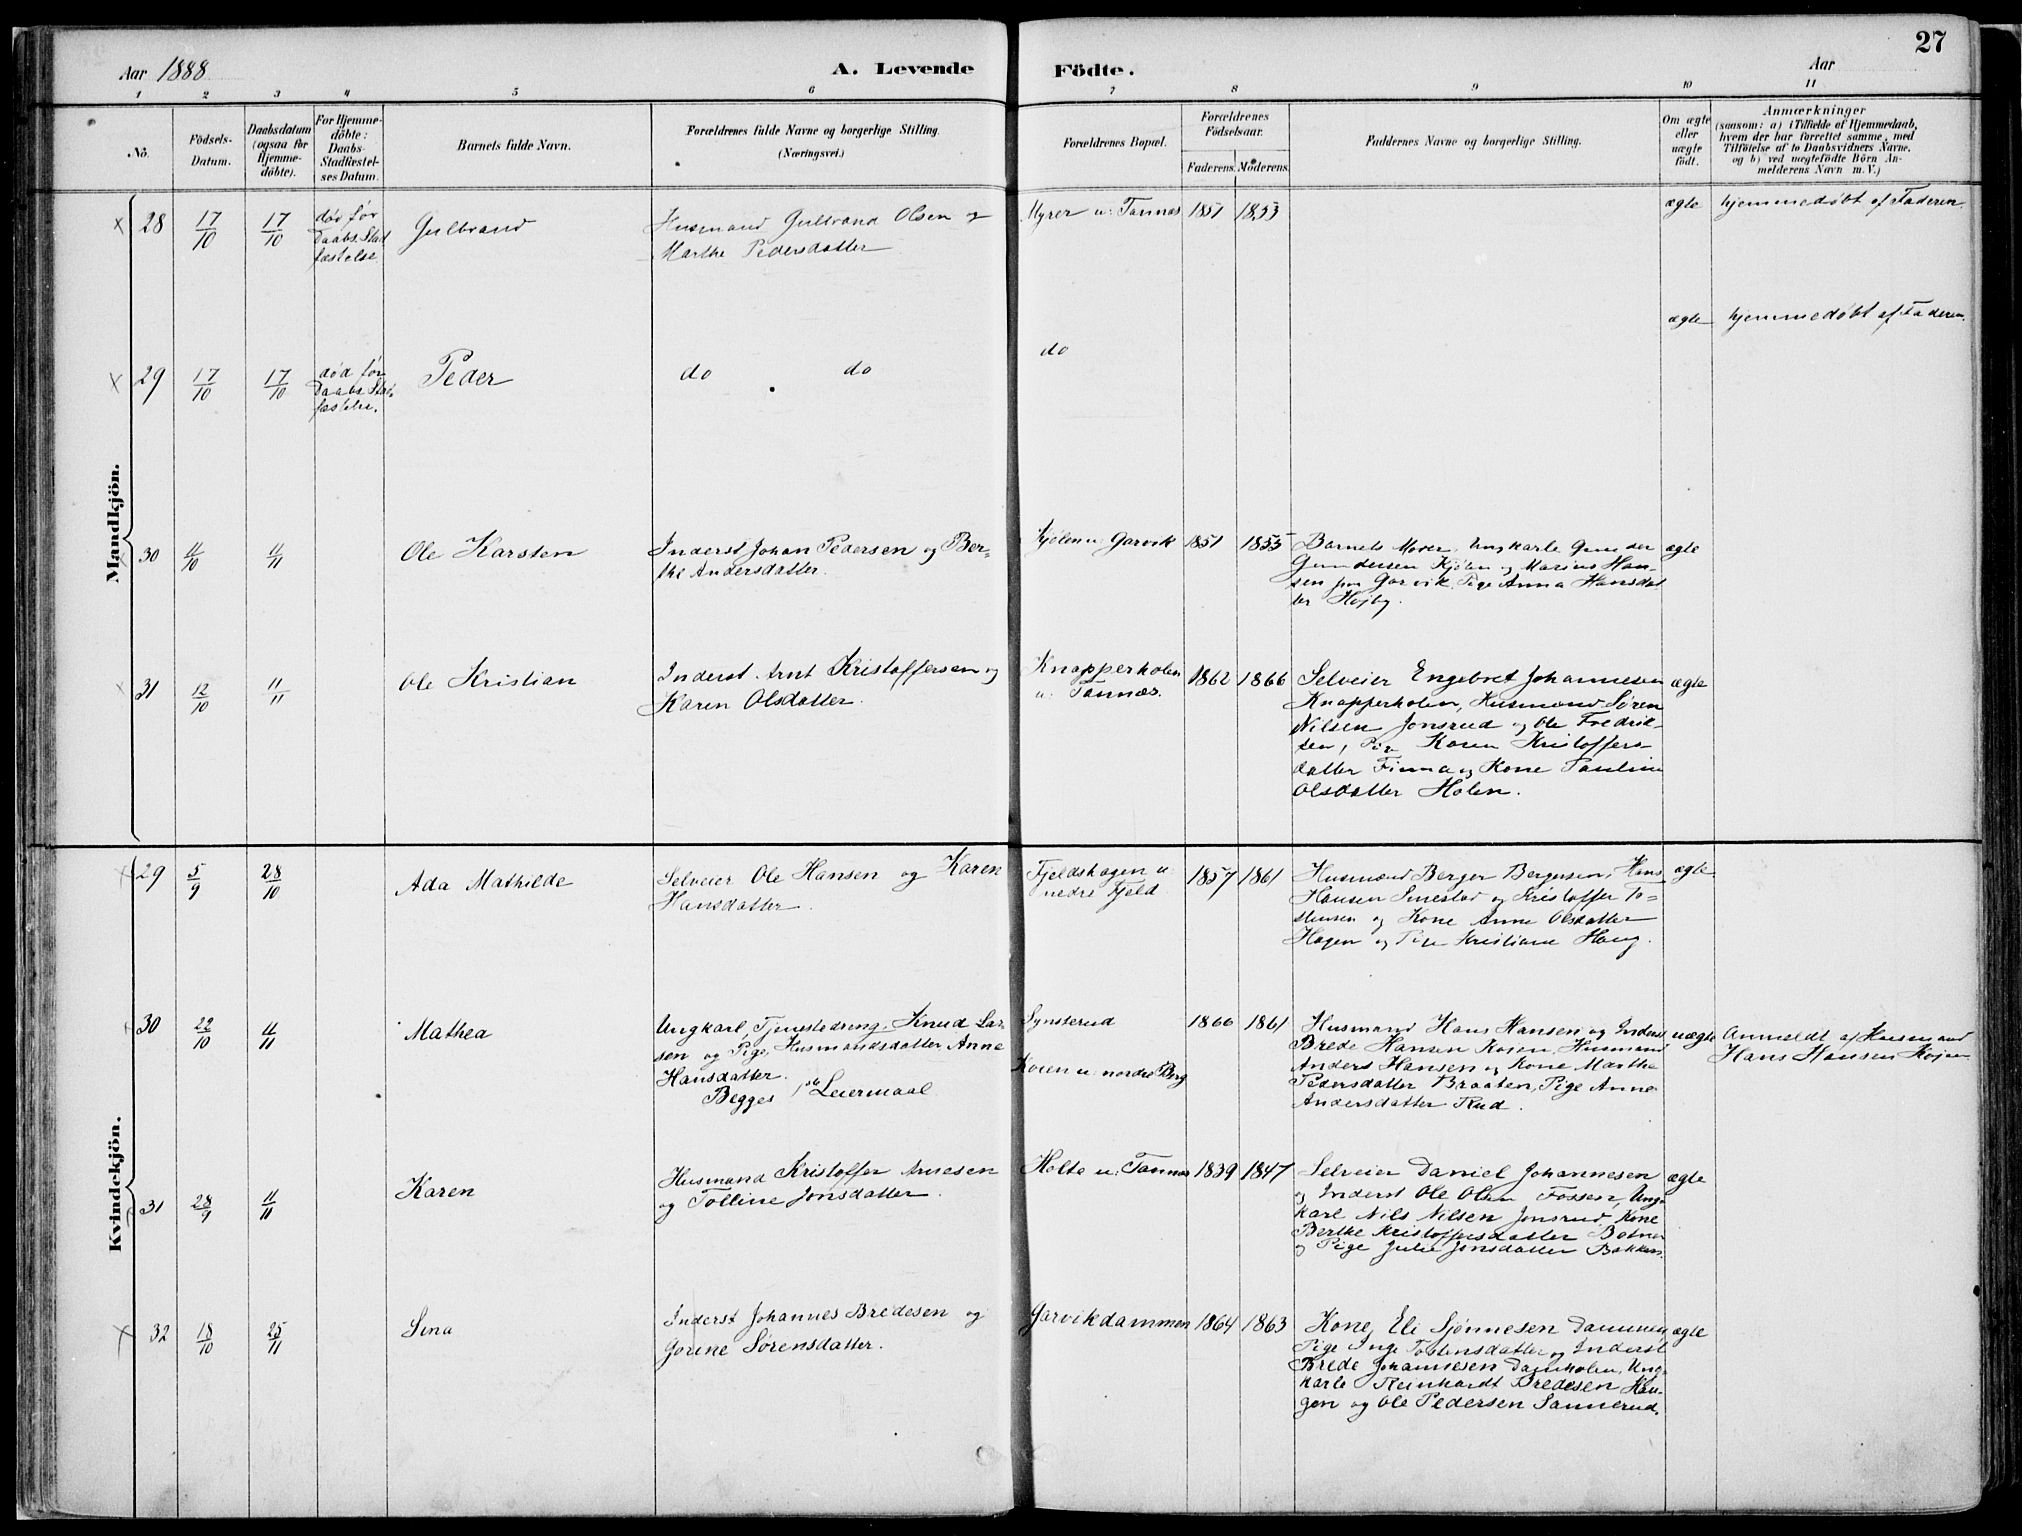 27
Aar 1888
A. Levende Födte.
Aar
1 2 3 4 5 6 7 8 9 10 11
No.
Födsels-Datum.
Daabsdatum (ogsaa for Hjemme-döbte).
For Hjemme-döbte: Daabs-Stadfæstel-ses Datum.
Barnets fulde Navn.
Forældrenes fulde Navne og borgerlige Stilling. (Næringsvei.)
Forældrenes Bopæl.
Forældrenes Födselsaar.
Faderens. Moderens.
Faddernes Navne og borgerlige Stilling.
Om ægte eller uægte födt.
Anmærkninger
(saasom: a) i Tilfælde af Hjemmedaab,
hvem der har forrettet samme, med
Tilföielse af to Daabsvidners Navne.
og b) ved uægtefödte Börn An-
melderens Navn m. V.)
Mandkjön.
28 17/10 17/10 død før Daabs Stad fæstelse Gulbrand
Husmand Gulbrand Olsen og
Marthe Pedersdatter
Myrer u: Tannæs 1851 1853
ægte hjemmedøbt af Faderen.
29 17/10 17/10 død før Daabs Stad fæstelse. Peder
do do
do
ægte hjemmedøbt af Faderen.
30 11/10 11/11 Ole Karsten
Inderst Johan Pedersen og Ber-
the Andersdatter.
Kjølen u: Garvik 1851 1855
Barnets Moder, Ungkarle Gunder
Gundersen Kjølen og Marius Han-
sen fra Garvik, Pige Anna Hansdat
ter Højby.
ægte
31 12/10 11/11 Ole Kristian
Inderst Arnt Kristoffersen og
Karen Olsdatter.
Knapperholen
u: Tannæs. 1862 1866
Selveier Engebret Johannesen
Knapperholen, Husmand Søren
Nilsen Jonsrud og Ole Fredrik-
sen, Pige Karen Kristoffers-
datter Finna og Kone Pauline
Olsdatter Holen.
ægte
Kvindekjön.
29 5/9 28/10 Ada Mathilde
Selveier Ole Hansen og Karen
Hansdatter.
Fjeldshagen u
nedre Fjeld 1857 1861
Husmænd Berger Bergersen, Hans
Hansen Smestad og Kristoffer To-
stensen og Kone Anne Olsdatter
Hagen og Pige Kristiane Haug.
ægte
30 22/10 11/11 Mathea
Ungkarl, Tjenestedreng, Knud Lar-
sen og Pige, Husmandsdatter Anne
Hansdatter.
Begges 1ste Leiermaal
Synsterud
Koien u: nordre Berg
1866 1861
Husmand Hans Hansen og Inderst
Brede Hansen Koien, Husmand
Anders Hansen og Kone Marthe
Pedersdatter Braaten, Pige Anne
Andersdatter Rud.
uægte
Anmeldt af Husmand
Hans Hansen Kojen
31 28/9 11/11 Karen
Husmand Kristoffer Arnesen
og Tolline Jonsdatter.
Holte u: Tannæs 1839 1847
Selveier Daniel Johannesen
og Inderst Ole Olsen Fossen, Ung-
karl Nils Nilsen Jonsrud, Kone
Berthe Kristoffersdatter Botner
og Pige Julie Jonsdatter Bakken.
ægte
32 18/10 25/11 Sina
Inderst Johannes Bredesen og
Gorine Sørensdatter.
Garvikdammen 1864 1863
Kone Eli Sjønnesen Dammen
Pige Inge Tostensdatter og Inderst
Brede Johannesen Damholen, Ung-
karle Reinhardt Bredesen Hau-
gen og Ole Pedersen Sannerud.
ægte